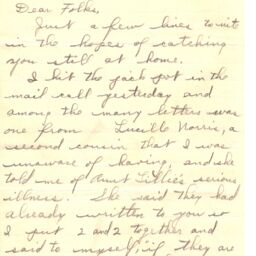 Dear Folks,
Just a few lines to wit
in the hopes of catching
you still at home.
I hit the jack pot in the
mail call yesterday and
among the many letters was
one from Lucille Norris, a
second cousin that I was
unaware of having, and she
told me of Aunt Tillie's serious
illness. She said they had
already written to you so
I put 2 and 2 together and
said to myself, "if they are